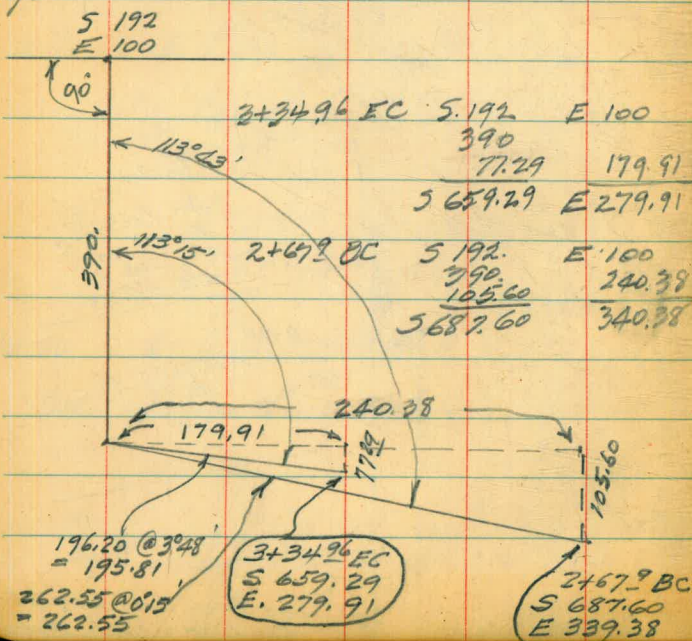 S 192
E 100
90°
3+34.96 EC S. 192 E 100
390
77.29 179.91
S 659.29 E 279.91
113°43'
113°15'
2+67.9 BC S 192. E 100
390. 240.38
105.60 340.38
S 687.60
390.
240.38
179.91
77.29
105.60
196.20 @ 3°48'
= 195.81
262.55 @ 0°15'
= 262.55
3+34.96 EC
S 659.29
E. 279.91
2+67.9 BC
S 687.60
E 339.38